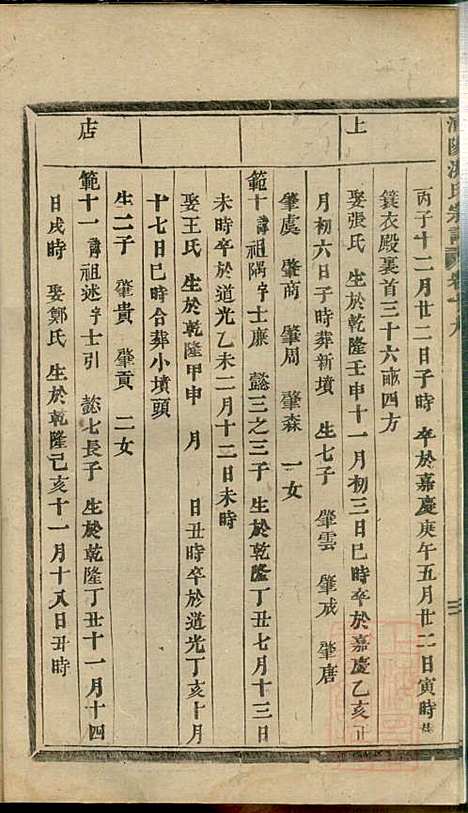 氏宗譜 卷十九
丙子十二月廿二日子時 卒於嘉慶庚午五月廿二日寅時
簑衣殿裏首三十六畝四方
娶張氏 生於乾隆壬申十一月初三日巳時卒於嘉慶乙亥正
月初六日子時葬新墳 生七子 肇雲 肇成 肇唐
肇虞 肇商 肇周 肇森 一女
範十 諱祖隅字士廉 懿三之三子 生於乾隆丁丑七月十三日
未時卒於道光乙未二月十二日未時
娶王氏 生於乾隆甲申 月 日丑時卒於道光丁亥十月
十七日巳時合葬小墳頭
生二子 肇貴 肇貢 二女
範十一 諱祖述字士引 懿七長子 生於乾隆丁丑十一月十四
日戌時 娶鄭氏 生於乾隆己亥十一月十八日丑時
上
店
三